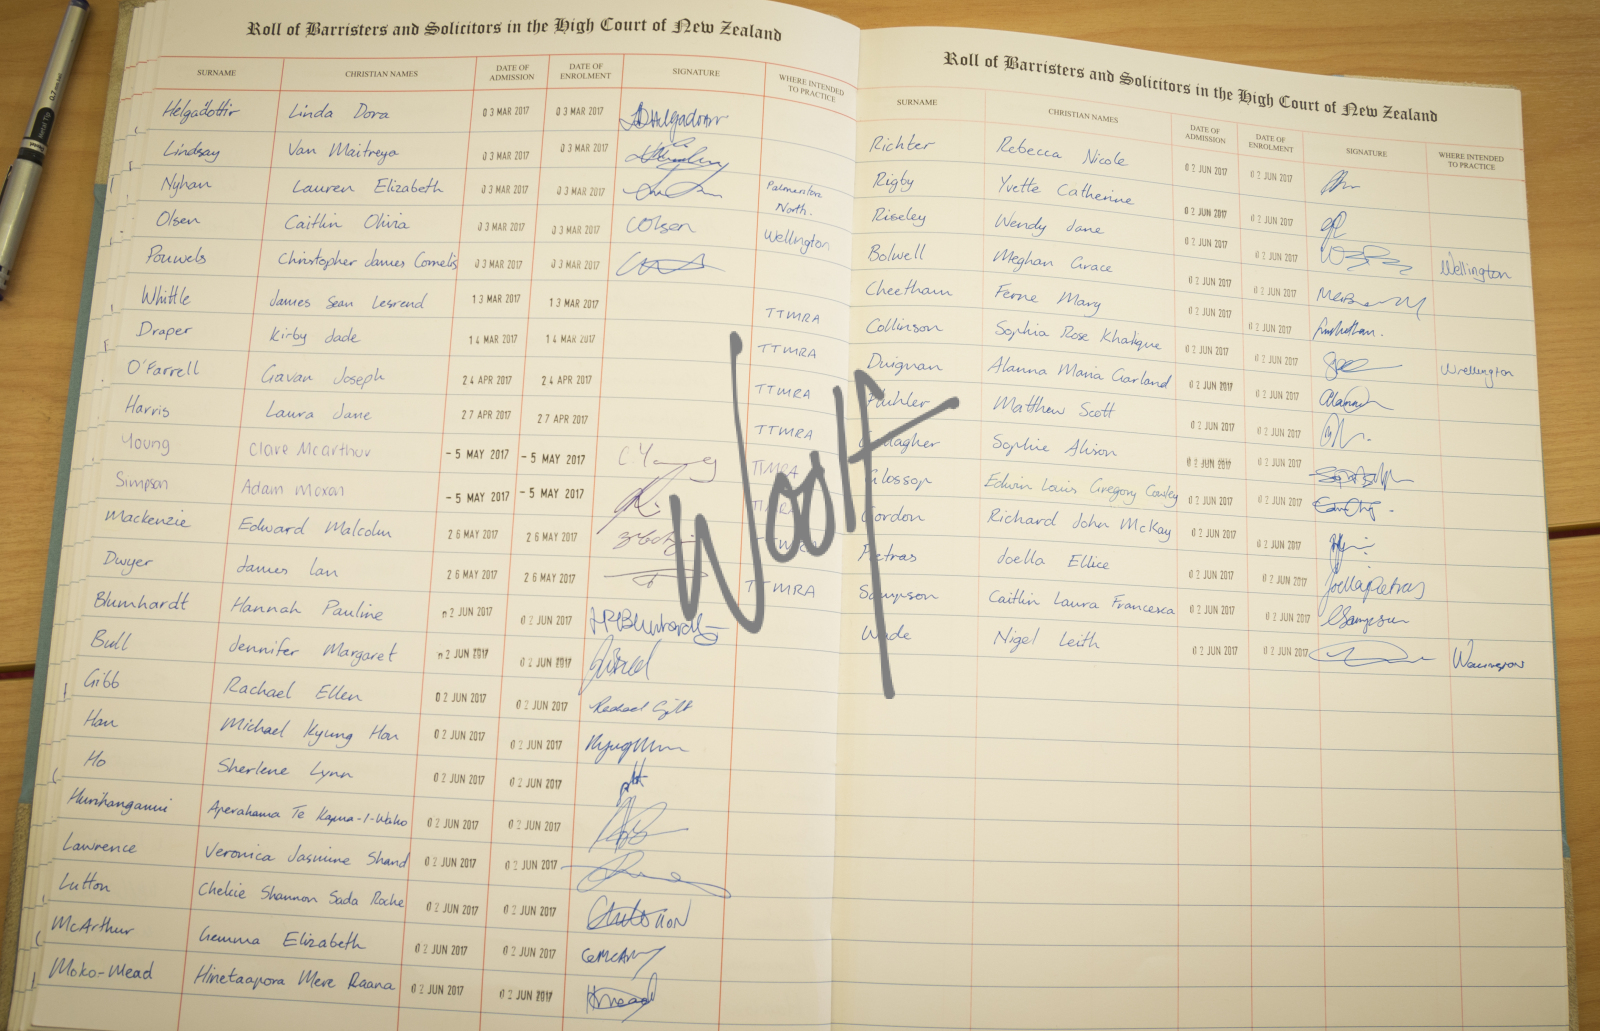 Roll of Barristers and Solicitors in the High Court of New Zealand
SURNAME CHRISTIAN NAMES DATE OF ADMISSION DATE OF ENROLMENT SIGNATURE WHERE INTENDED TO PRACTICE
Helgadóttir Linda Dora 03 MAR 2017 03 MAR 2017
Lindsay Van Maitreya 03 MAR 2017 03 MAR 2017
Nyhan Lauren Elizabeth 03 MAR 2017 03 MAR 2017 Palmerston North.
Olsen Caitlin Olivia 03 MAR 2017 03 MAR 2017 COlsen Wellington
Pouwels Christopher James Cornelis 03 MAR 2017 03 MAR 2017
Whittle James Sean 13 MAR 2017 13 MAR 2017 TTMRA
Draper Kirby Jade 14 MAR 2017 14 MAR 2017 TTMRA
O'Farrell Gavan Joseph 24 APR 2017 24 APR 2017 TTMRA
Harris Laura Jane 27 APR 2017 27 APR 2017 TTMRA
Young Clare McArthur -5 MAY 2017 -5 MAY 2017 C. Young TTMRA
Simpson Adam Moxon -5 MAY 2017 -5 MAY 2017 TTMRA
Mackenzie Edward Malcolm 26 MAY 2017 26 MAY 2017 TTMRA
Dwyer James Ian 26 MAY 2017 26 MAY 2017 TTMRA
Blumhardt Hannah Pauline 02 JUN 2017 02 JUN 2017 HPBlumhardt
Bull Jennifer Margaret 02 JUN 2017 02 JUN 2017
Gibb Rachael Ellen 02 JUN 2017 02 JUN 2017 Rachael Gibb
Han Michael Kyung Han 02 JUN 2017 02 JUN 2017
Ho Sherlene Lynn 02 JUN 2017 02 JUN 2017
Hurihanganui Aperahama Te 02 JUN 2017 02 JUN 2017
Lawrence Veronica Jasmine Shand 02 JUN 2017 02 JUN 2017
Lutton Chelcie Shannon Sada Roche 02 JUN 2017 02 JUN 2017
McArthur Gemma Elizabeth 02 JUN 2017 02 JUN 2017
Moko-Mead Hinetaapora Mere Raana 02 JUN 2017 02 JUN 2017
Roll of Barristers and Solicitors in the High Court of New Zealand
SURNAME CHRISTIAN NAMES DATE OF ADMISSION DATE OF ENROLMENT SIGNATURE WHERE INTENDED TO PRACTICE
Richter Rebecca Nicole 02 JUN 2017 02 JUN 2017
Rigby Yvette Catherine 02 JUN 2017 02 JUN 2017
Riseley Wendy Jane 02 JUN 2017 02 JUN 2017 Wellington
Bolwell Meghan Grace 02 JUN 2017 02 JUN 2017
Cheetham Ferne Mary 02 JUN 2017 02 JUN 2017
Collinson Sophia Rose Khalique 02 JUN 2017 02 JUN 2017 Wellington
Duignan Alanna Maria Garland 02 JUN 2017 02 JUN 2017
Matthew Scott 02 JUN 2017 02 JUN 2017
Gallagher Sophie Alison 02 JUN 2017 02 JUN 2017
Glossop Edwin Louis Gregory Cowley 02 JUN 2017 02 JUN 2017
Gordon Richard John McKay 02 JUN 2017 02 JUN 2017
Pietras Joella Ellice 02 JUN 2017 02 JUN 2017 Joella Pietras
Sampson Caitlin Laura Francesca 02 JUN 2017 02 JUN 2017 CSampson
Wade Nigel Leith 02 JUN 2017 02 JUN 2017
Woolf